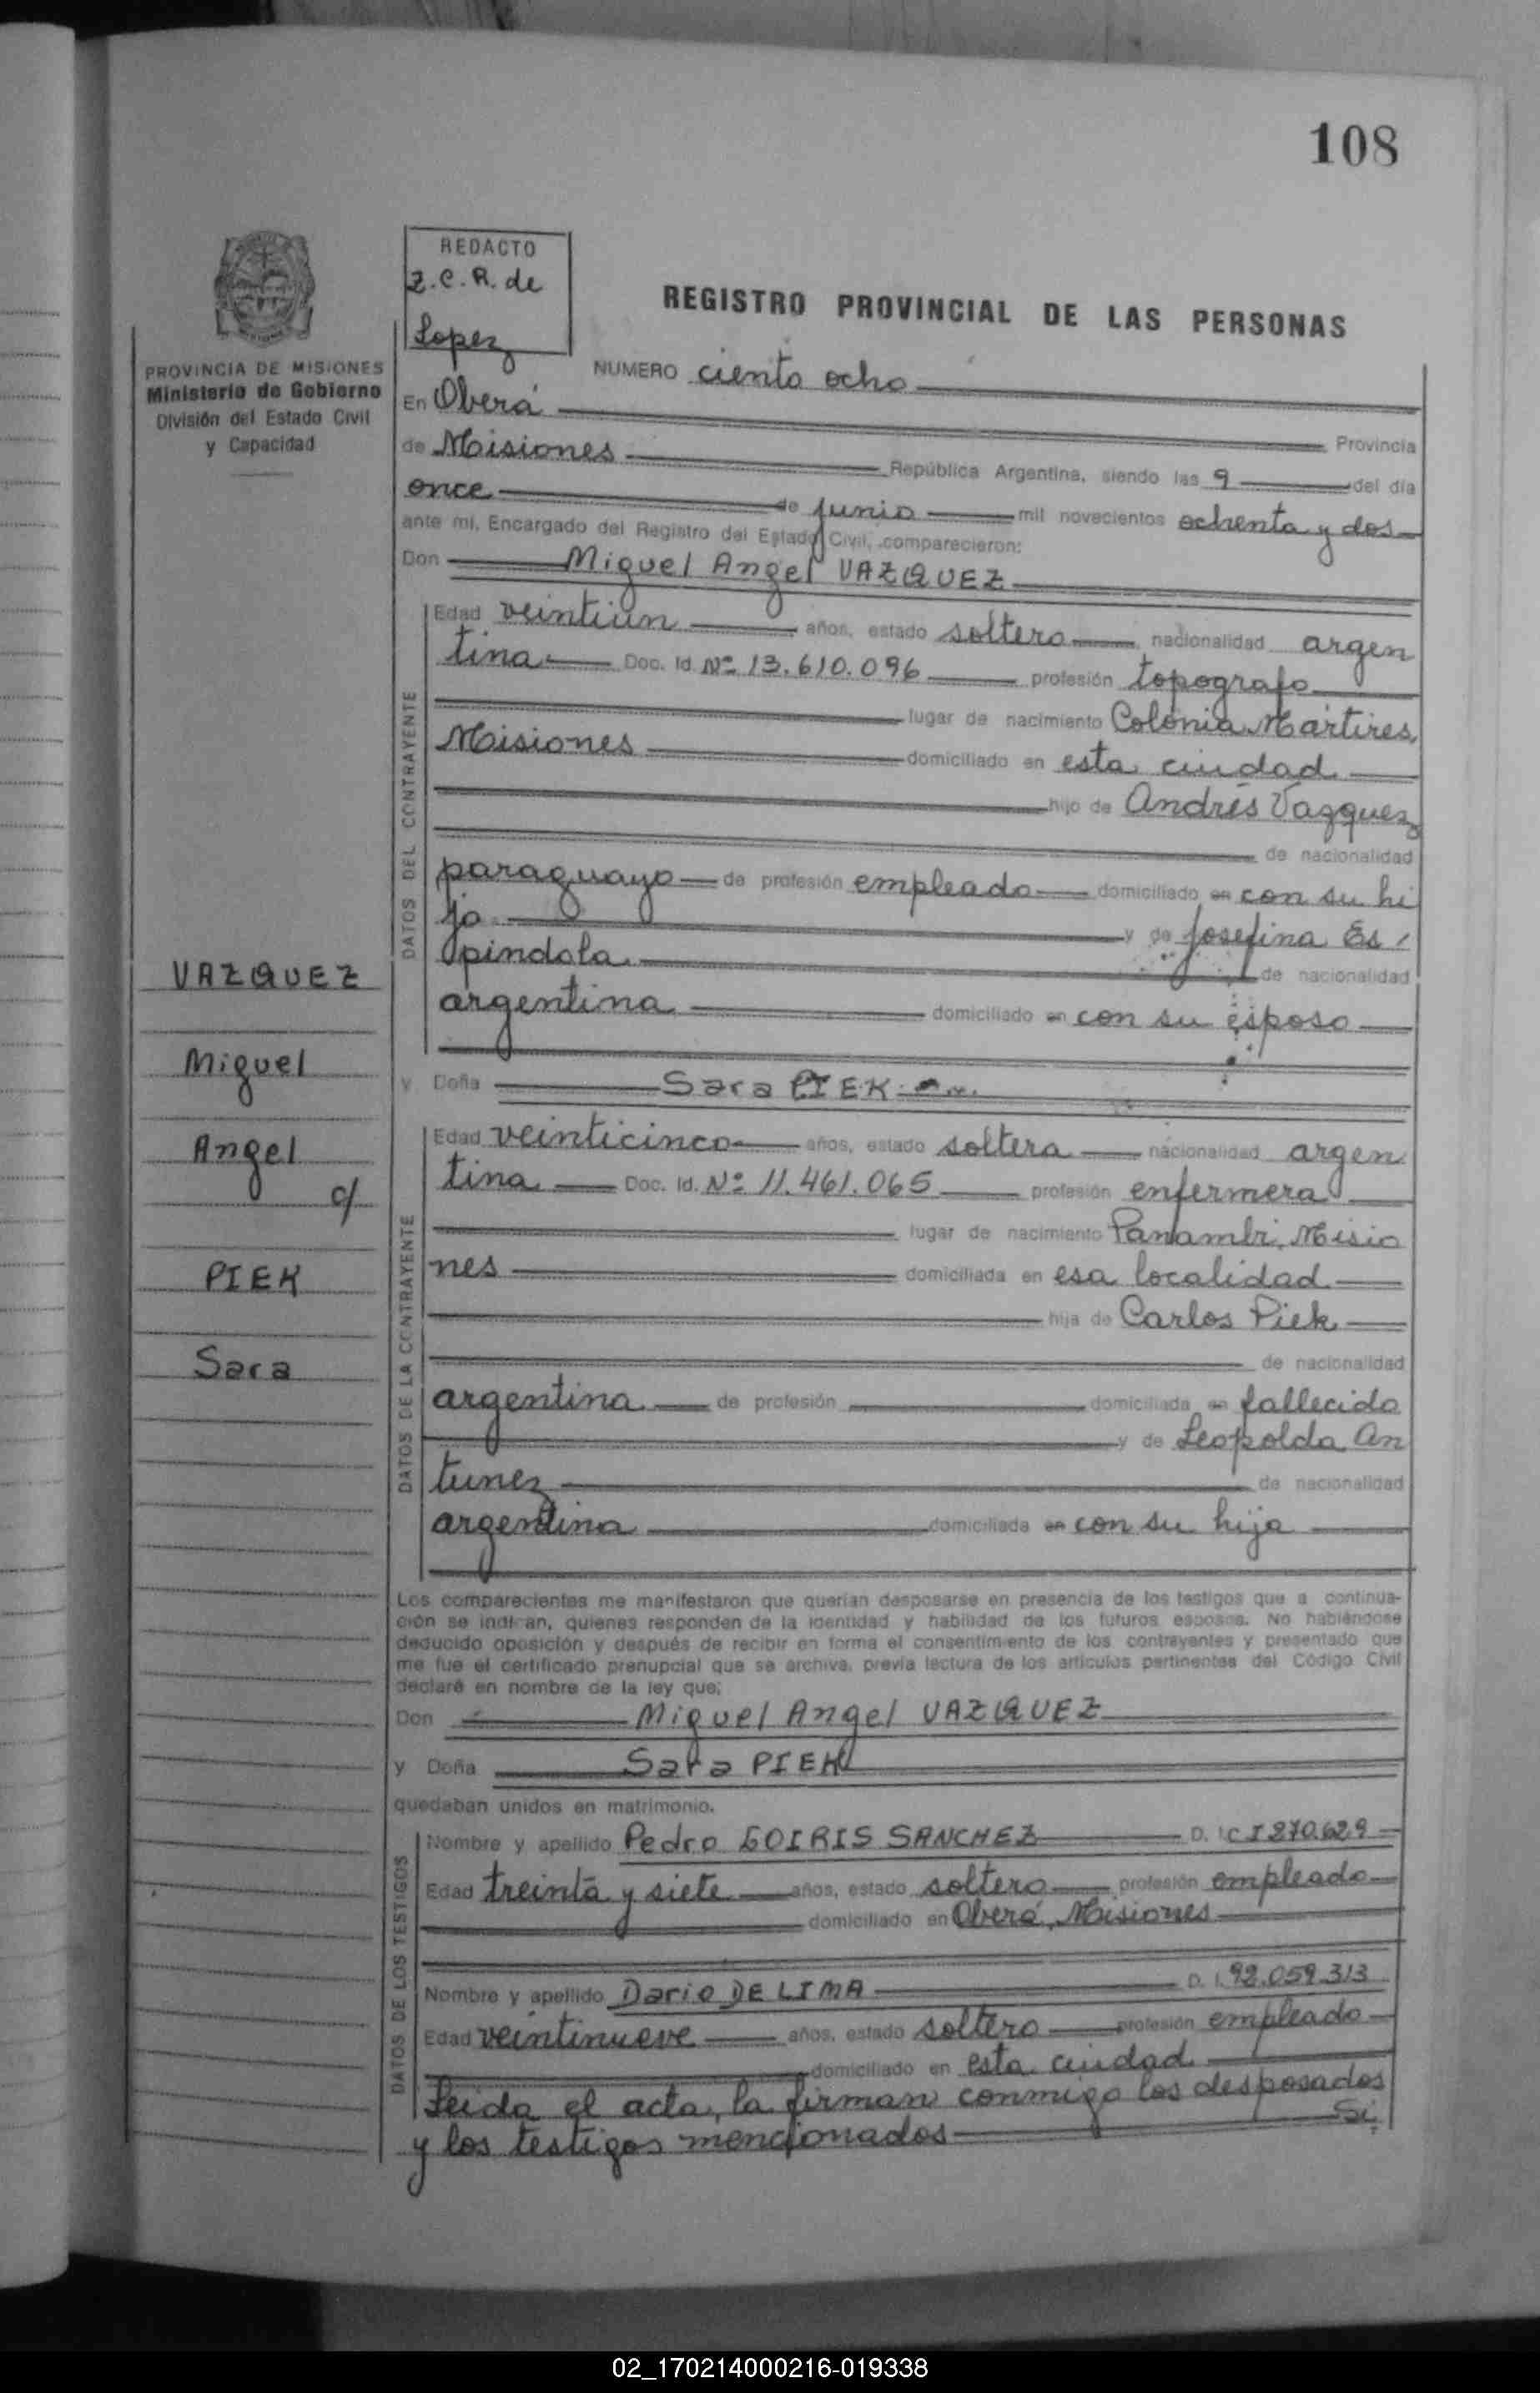 108
REDACTO
Z.C.R. de
Lopez
REGISTRO PROVINCIAL DE LAS PERSONAS
PROVINCIA DE MISIONES
Ministerio de Gobierno
División del Estado Civil
y Capacidad
NUMERO ciento ocho
En Oberá Provincia
de Misiones República Argentina, siendo las 9 del día
once de junio mil novecientos ochenta y dos
ante mí, Encargado del Registro del Estado Civil, comparecieron:
Don Miguel Angel VAZQUEZ
DATOS DEL CONTRAYENTE
Edad veintiun años, estado soltero nacionalidad argen
tina Doc. Id. Nº 13.610.096 profesión topografo
lugar de nacimiento Colonia Martires,
Misiones domiciliado en esta ciudad
hijo de Andrés Vazquez
de nacionalidad
paraguayo de profesión empleado domiciliado en con su hi
jo y de Josefina Es
pindola de nacionalidad
argentina domiciliado en con su esposo
y Doña Sara PIEK
DATOS DE LA CONTRAYENTE
Edad veinticinco años, estado soltera nacionalidad argen
tina Doc. Id. Nº 11.461.065 profesión enfermera
lugar de nacimiento Panambi, Misio
nes domiciliada en esa localidad
hija de Carlos Piek
de nacionalidad
argentina de profesión domiciliada en fallecido
y de Leopolda An
tunez de nacionalidad
argentina domiciliada en con su hija
VAZQUEZ
Miguel
Angel
c/
PIEK
Sara
Los comparecientes me manifestaron que querían desposarse en presencia de los testigos que a continua-
ción se indican, quienes responden de la identidad y habilidad de los futuros esposos. No habiéndose
deducido oposición y después de recibir en forma el consentimiento de los contrayentes y presentado que
me fue el certificado prenupcial que se archiva, previa lectura de los artículos pertinentes del Código Civil
declaré en nombre de la ley que;
Don Miguel Angel VAZQUEZ
y Doña Sara PIEK
quedaban unidos en matrimonio.
DATOS DE LOS TESTIGOS
Nombre y apellido Pedro GOIRIS SANCHEZ D. I. C I 270.629
Edad treinta y siete años, estado soltero profesión empleado
domiciliado en Oberá, Misiones
Nombre y apellido Dario DE LIMA D. I. 92.059.313
Edad veintinueve años, estado soltero profesión empleado
domiciliado en esta ciudad
Leida el acta, la firman conmigo los desposados
y los testigos mencionados
02_170214000216-019338